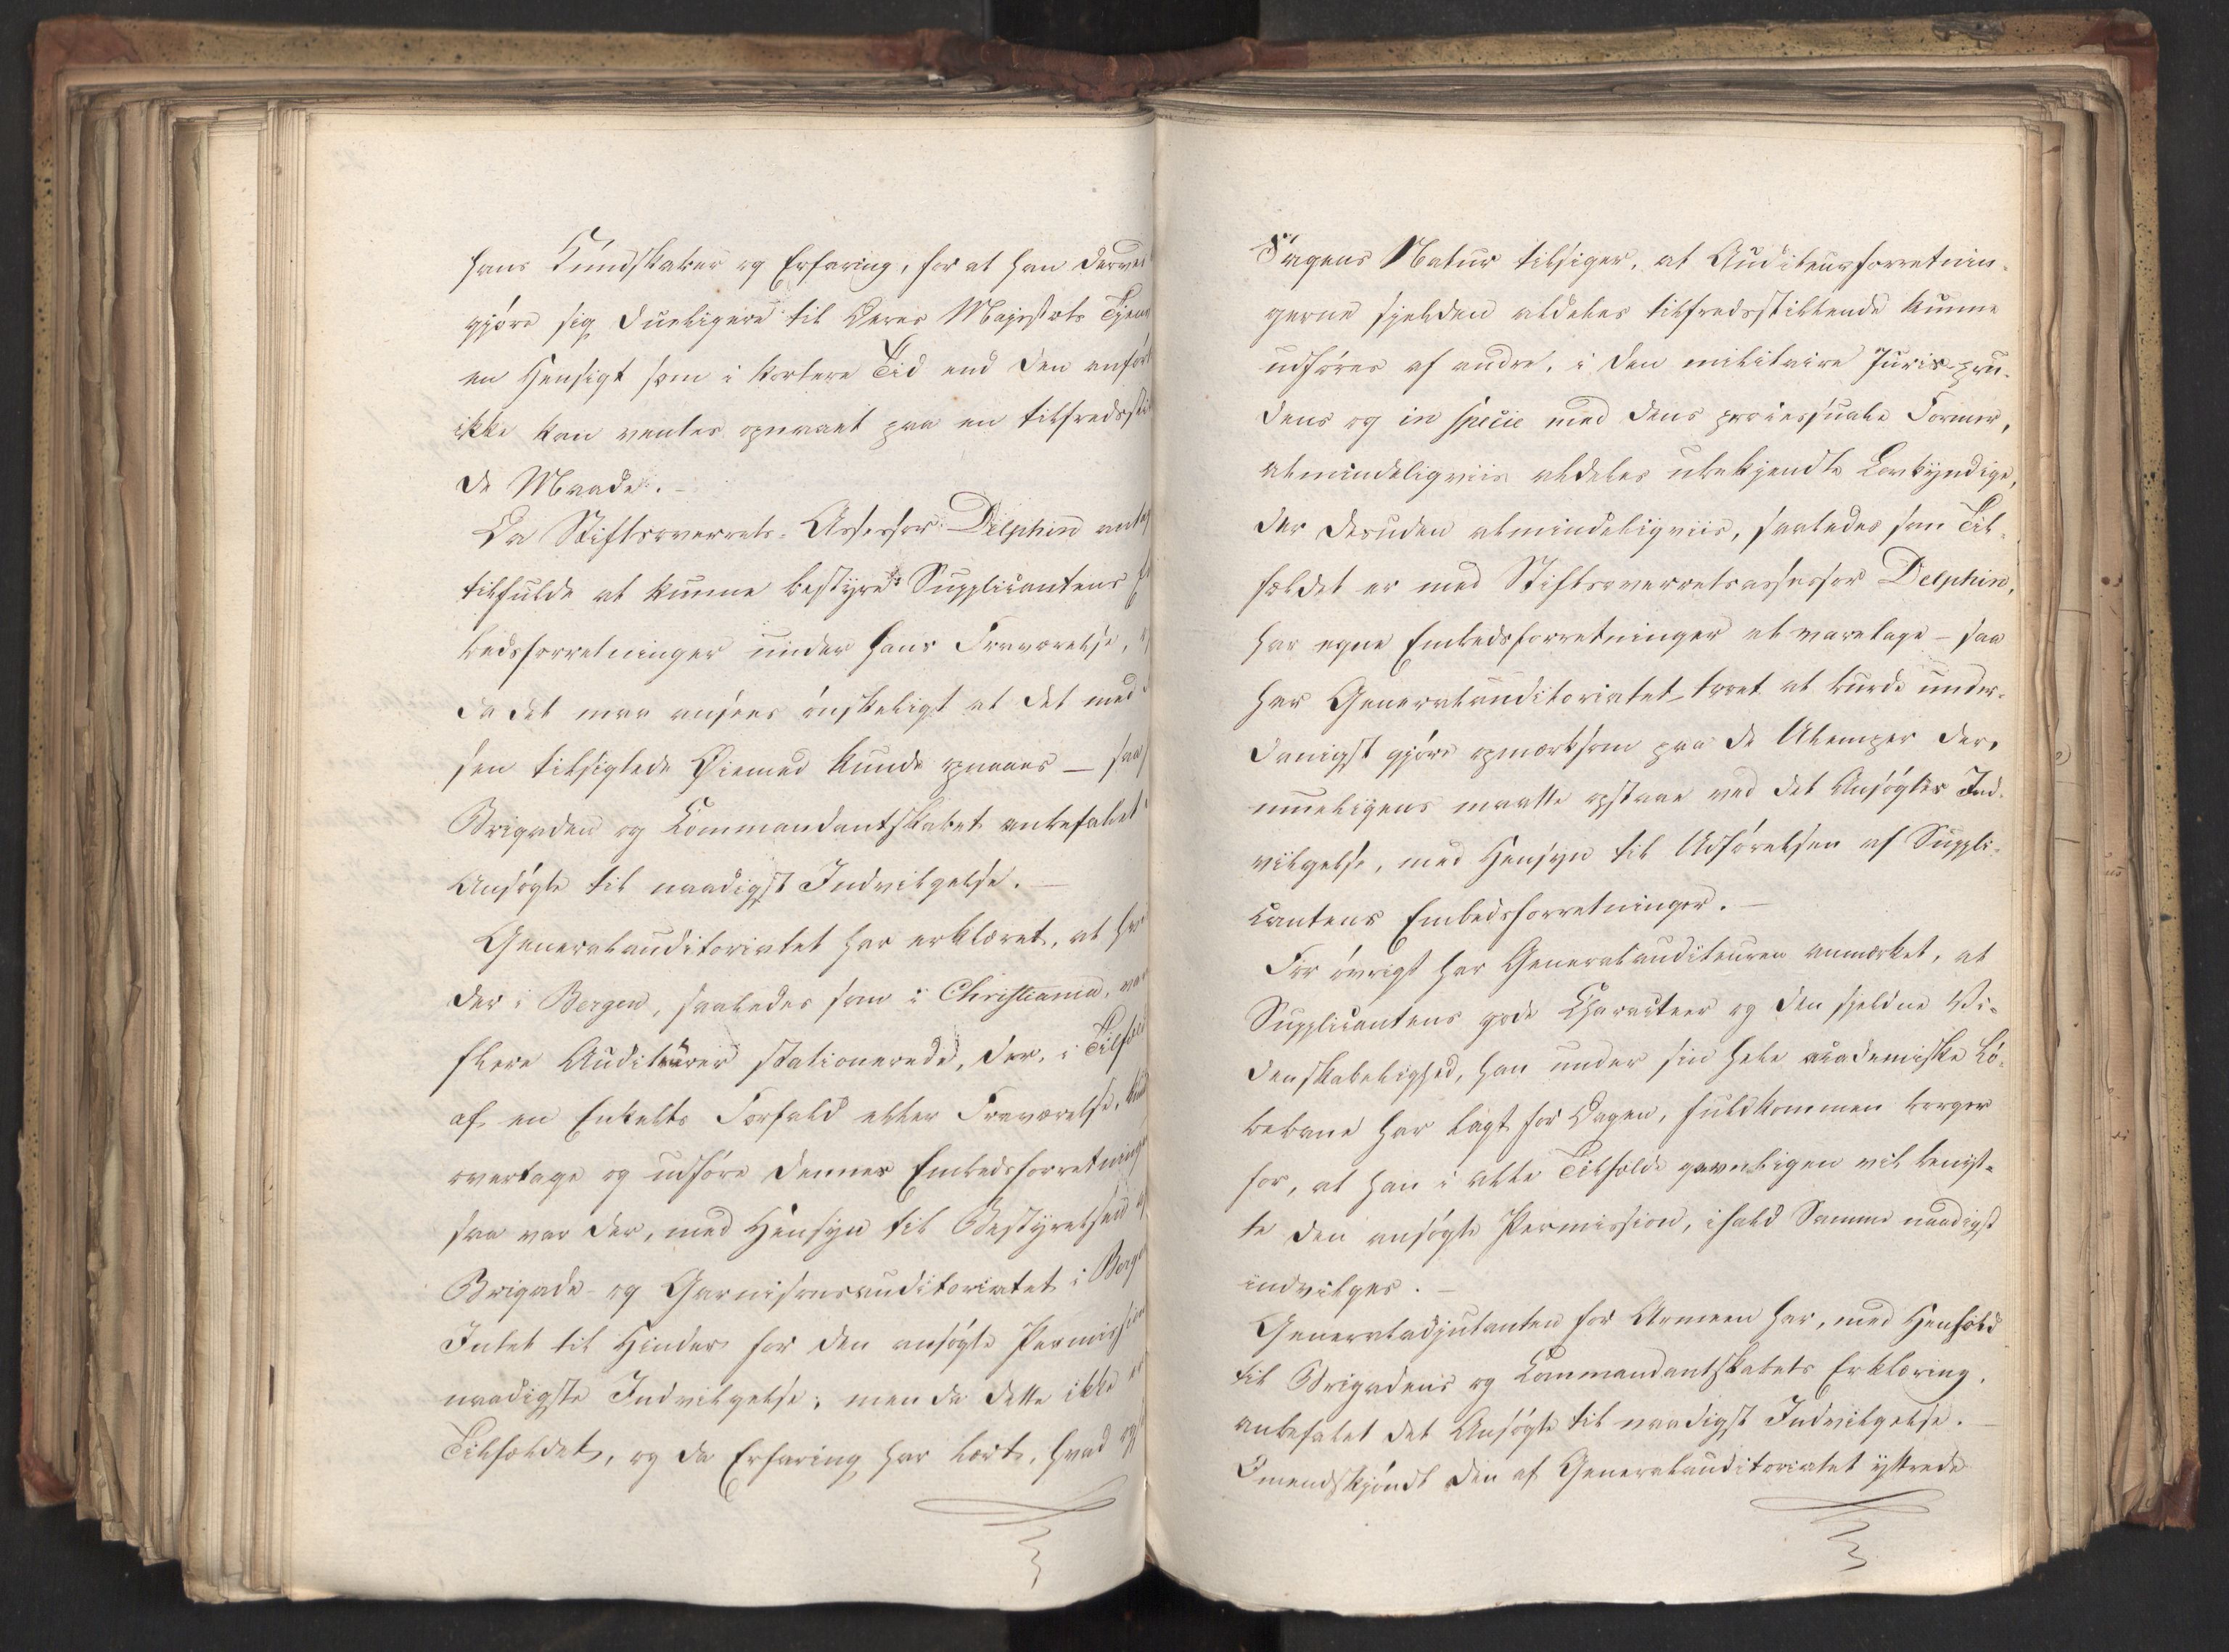 hans Kundskaber og Erfaring, for at han derved
gjöre sig dueligere til Deres Majestæts Tjene
en Hensigt som i kortere Tid end den anfört
ikke kan ventes opnaaet paa en tilfredssti
de Maade. –
Da Stiftsoverrets-Assessor Delphin antag
tilfulde at kunne bestyre Supplicantens E
bedsforretninger under hans Fraværelse, og
da det maa ansees önskeligt at det med
sen tilsigtede Øiemed kunde opnaaes – saa
Brigaden og Commandantskabet anbefalet
Ansögte til naadigst Indvilgelse. –
Generalauditoriatet har erklæret, at hv
der i Bergen, saaledes som i Christiania, var
flere Auditeurer stationerede, der, i Tilfæl
af en Enkelts Forfald eller Fraværelse, kund
overtage og udföre dennes Embedsforretning
saa var der, med Hensyn til Bestyrelsen af
Brigade- og Garnisonsauditoriatet i Berge
Intet til Hinder for den ansögte Permission
naadigste Indvilgelse; men da dette ikke er
Tilfældet, og da Erfaring har lært, hvad og
Sagens Natur tilsiger, at Auditeurforretnin-
gerne sjelden aldeles tilfredsstillende kunne
udföres af andre, i den militaire Jurispru-
dens og in specie med dens processuale Former,
almindeligviis aldeles ubekjendte Lovkyndige,
der desuden almindeligviis, saaledes som Til-
fældet er med Stiftsoverretsassessor Delphin,
har egne Embedsforretninger at varetage – saa
har Generalauditoriatet troet at burde under-
danigst gjöre opmærksom paa de Ulemper der,
mueligens maatte opstaae ved det Ansögtes Ind-
vilgelse, med Hensyn til Udförelsen af Suppli-
cantens Embedsforretninger. –
For övrigt har Generalauditeuren anmærket, at
Supplicantens gode Characteer og den sjeldne Vi-
denskabelighed, han under sin hele academiske Lö-
bebane har lagt for Dagen, fuldkommen borger
for, at han i alle Tilfælde gavnligen vil benyt-
te den ansögte Permission, ifald Samme naadigst
indvilges. –
Generaladjutanten for Armeen har, med Henhold
til Brigadens og Commandantskabets Erklæring,
anbefalet det Ansögte til naadigst Indvilgelse. –
Omendskjöndt den af Generalauditoriatet yttrede